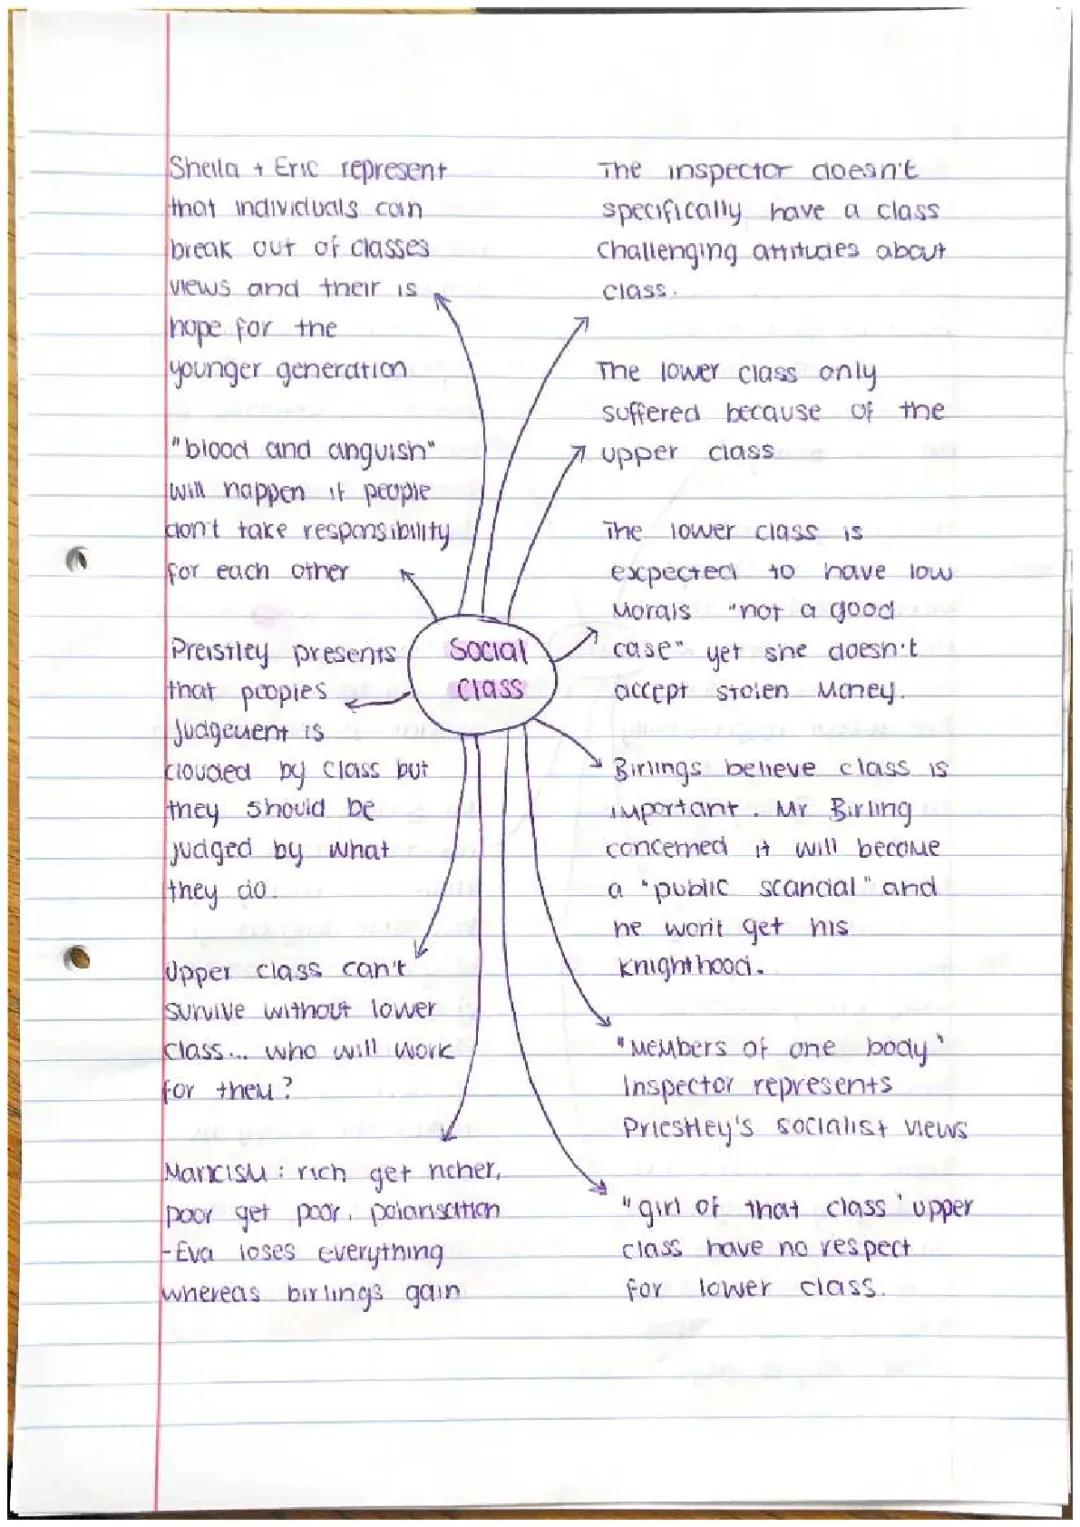 Sheila + Eric represent
that individuals can
break out of classes
views and their is
hope for the
younger generation
"blood and anguish"
will happen if people
don't take responsibility
for each other
Preistley presents
that peoples
judgement is
clouded by class but
they should be
judged by what
they do.
Upper class can't
survive without lower
class... who will work
for them?
Marxism: rich get richer,
poor get poor, polarisation
-Eva loses everything
whereas birlings gain
Social
Class
The inspector doesn't
specifically have a class
Challenging attitudes about
class.
The lower class only
suffered because of the
upper class
The lower class is
expected to have low
Morals "not a good
case" yet she doesn't
accept stolen Money.
Birlings believe class is
important. Mr Birling
concerned it will become
a "public scandal" and
he won't get his
Knighthood.
"Members of one body"
Inspector represents
Priestley's socialist views
"girl of that class" upper
class have no respect
for lower class.